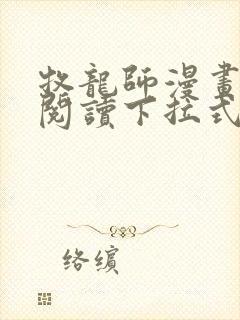 牧龍師漫畫
閱讀下拉式
络缤